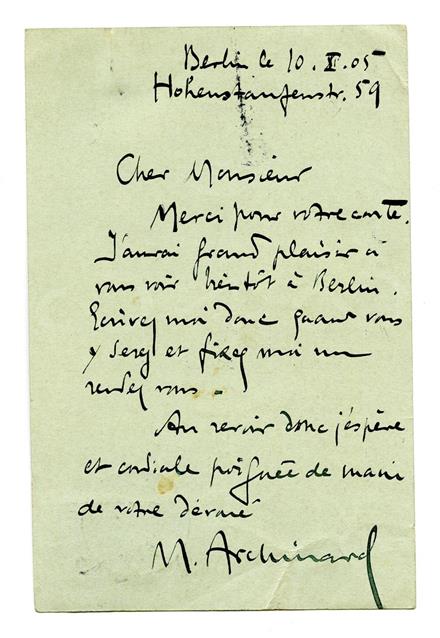 Berlin le 10.X.05
Hohenstaufenstr. 59
Cher Monsieur
Merci pour votre carte.
J'aurai grand plaisir à
vous voir bientôt à Berlin.
Ecrivez moi donc quand vous
y serez et fixez moi un
rendez vous.
Au revoir donc j'éspère
et cordiale poignée de main
de votre dévoué
M. Archinard